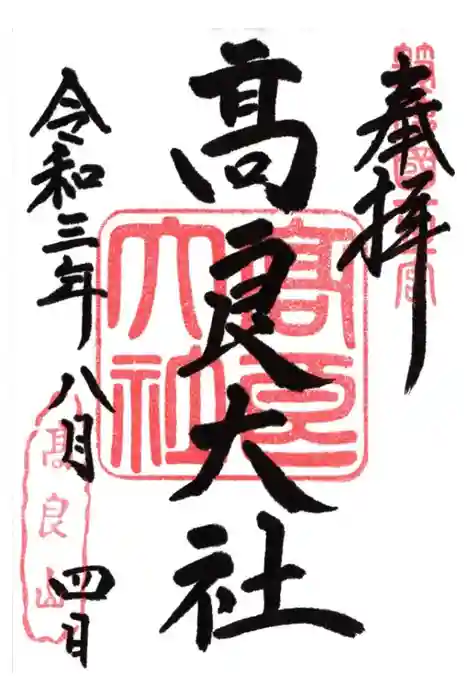 奉拝
高良大社
令和三年八月四日
高良大社
高良山